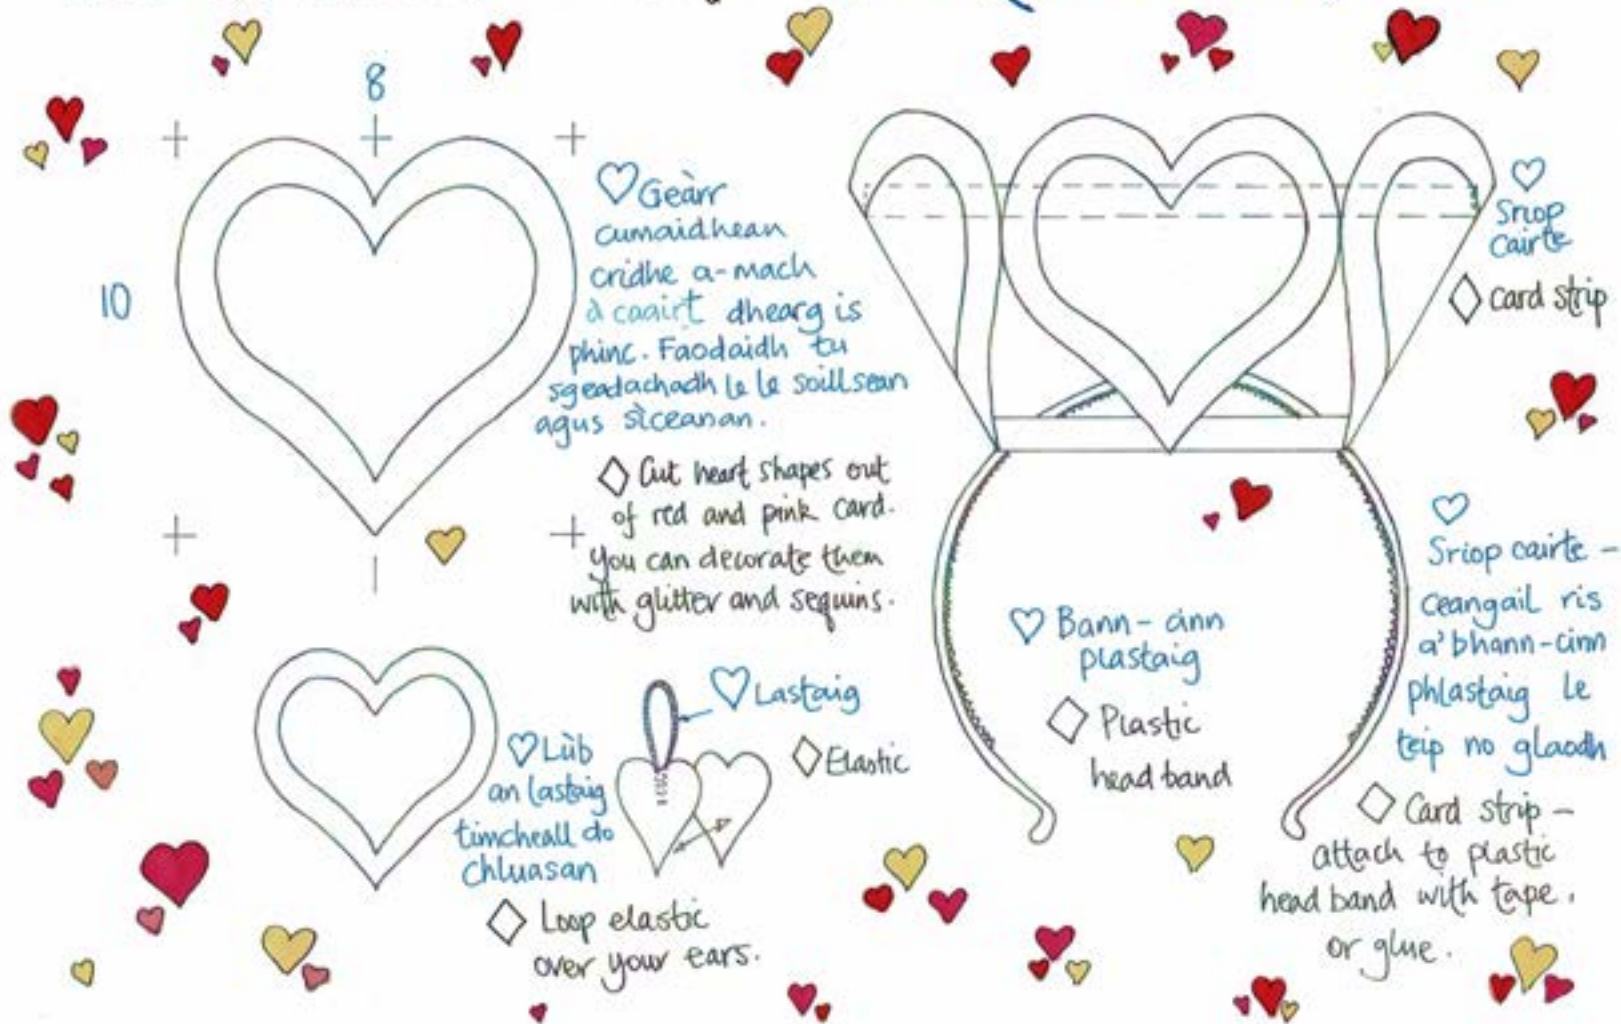 8
10
Geàrr
cumaidhean
cridhe a-mach
à caairt dhearg is
phinc. Faodaidh tu
sgeadachadh le le soillsean
agus sìceanan.
Cut heart shapes out
of red and pink card.
You can decorate them
with glitter and sequins.
Sriop
cairte
Card strip
Lùb
an lastaig
timcheall do
chluasan
Loop elastic
over your ears.
Lastaig
Elastic
Bann-cinn
plastaig
Plastic
head band
Sriop cairte -
ceangail ris
a' bhann-cinn
phlastaig le
teip no glaodh
Card strip -
attach to plastic
head band with tape.
or glue.